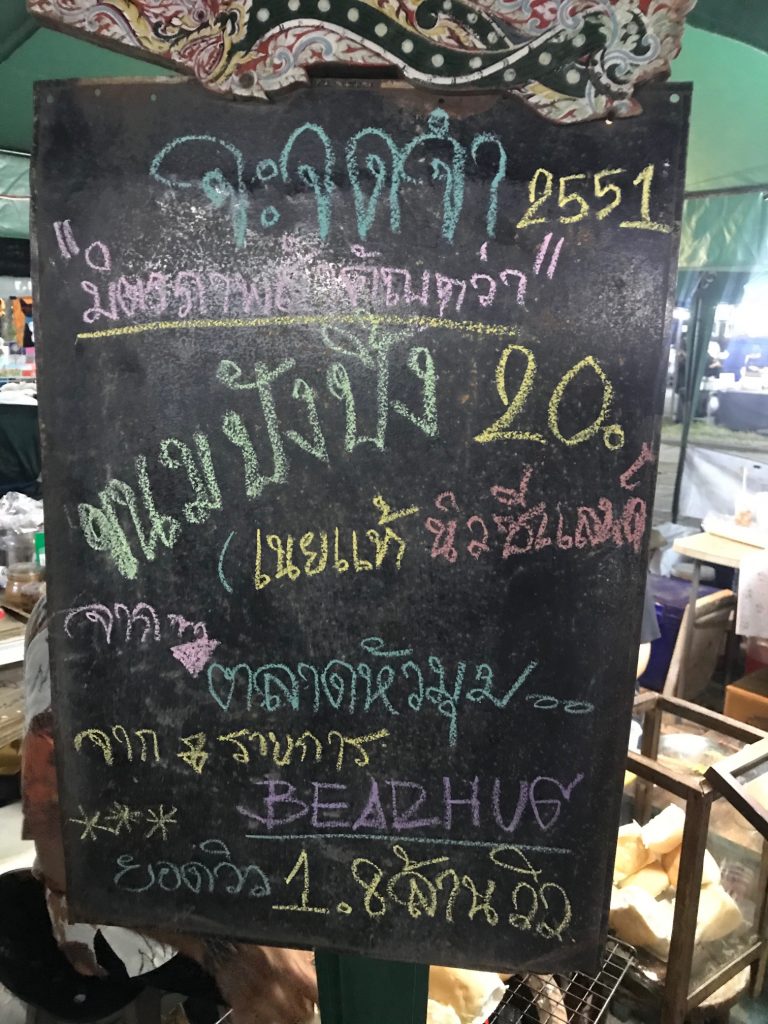 จะจดจำ 2551
"มิตรภาพสำคัญกว่า"
ขนมปังปิ้ง 20.
(เนยแท้ นิวซีแลนด์
จาก
ตลาดหัวมุม..
จาก รายการ
*** BEARHUG
ยอดวิว 1.8ล้านวิว